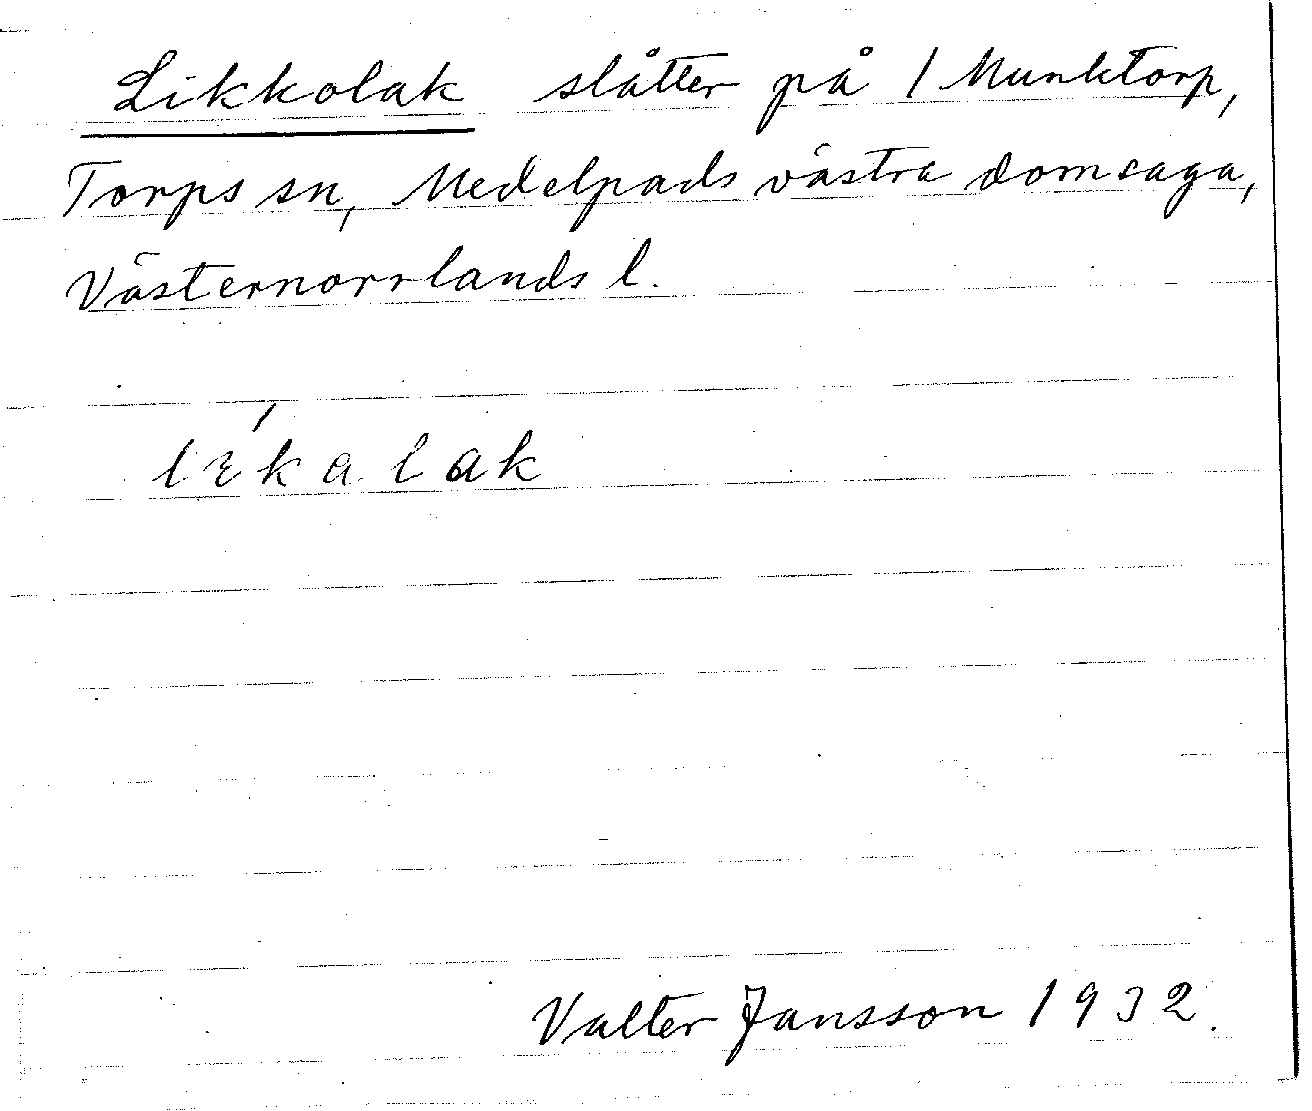 Likkolak slåtter på 1 Munktorp,
Torps sn, Medelpads västra domsaga,
Västernorrlands l.
lɛ́kalak
Valter Jansson 1932.